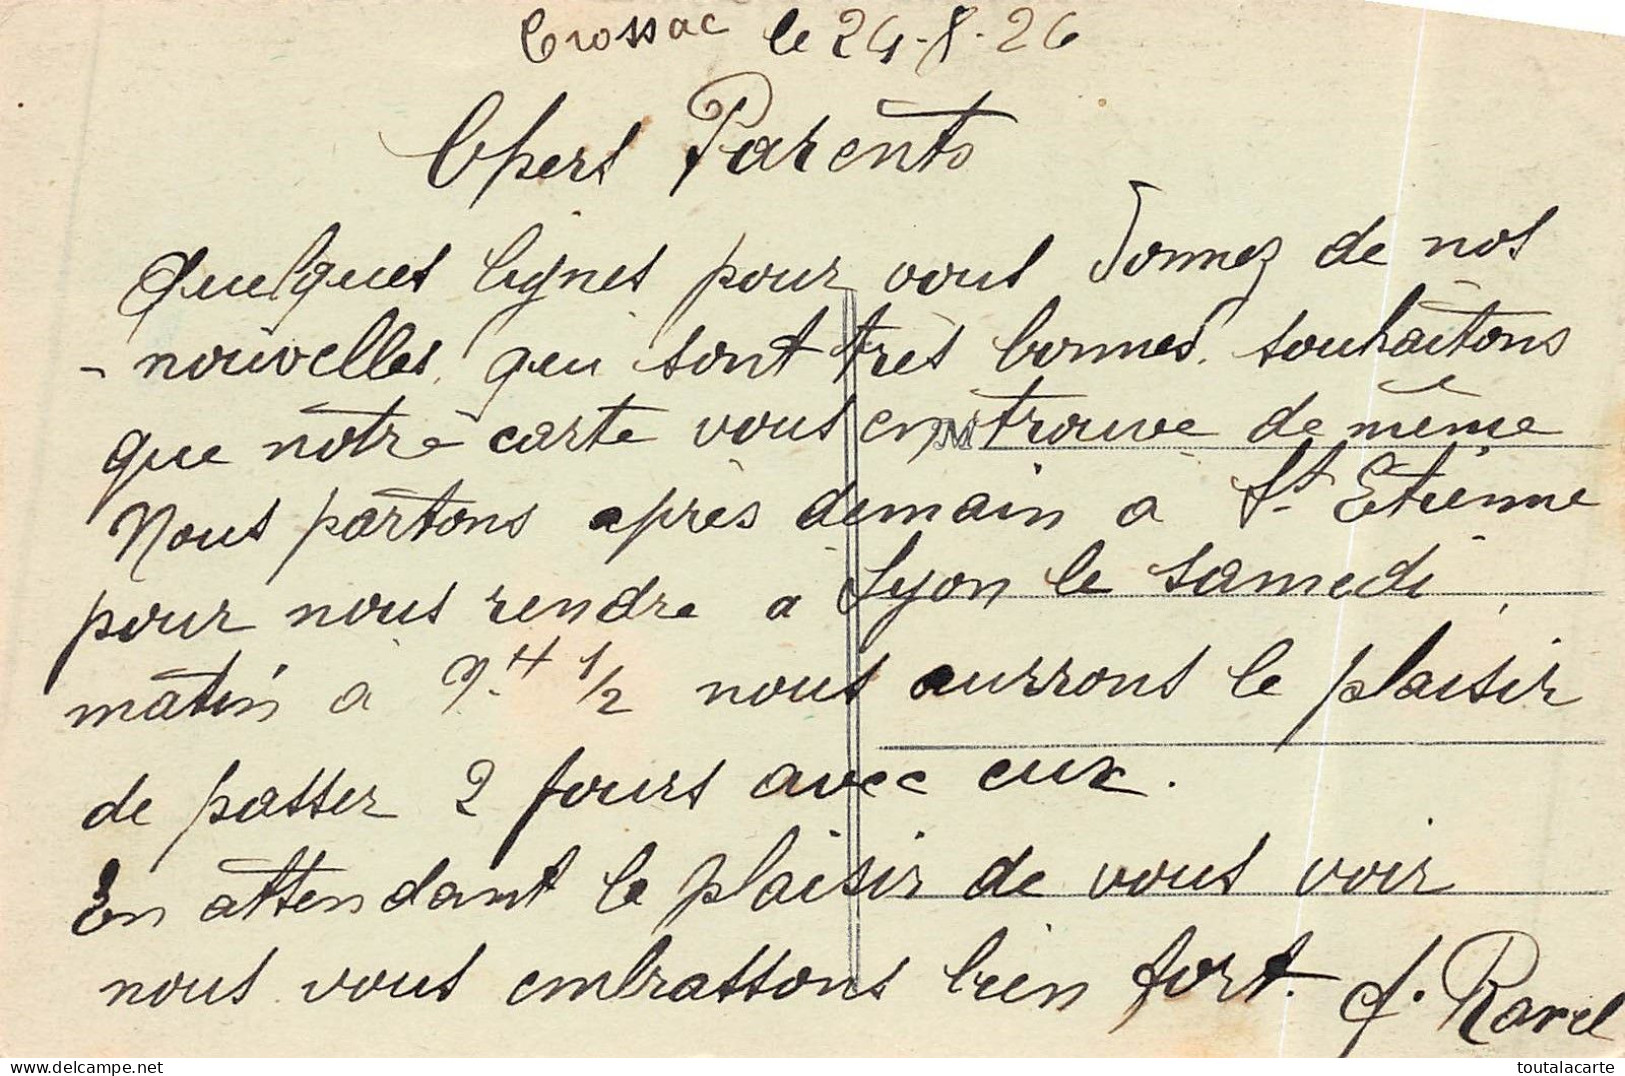 Crossac le 24-8-26
Chers Parents
Quelques lignes pour vous donnez de nos
nouvelles qui sont très bonnes. souhaitons
que notre carte vous en trouve de même
Nous partons après demain à St Etienne
pour nous rendre à Lyon le samedi
matin à 9.H 1/2 nous aurrons le plaisir
de passer 2 jours avec eux.
En attendant le plaisir de vous voir
nous vous embrassons bien fort. J. Ravel
toutalacarte